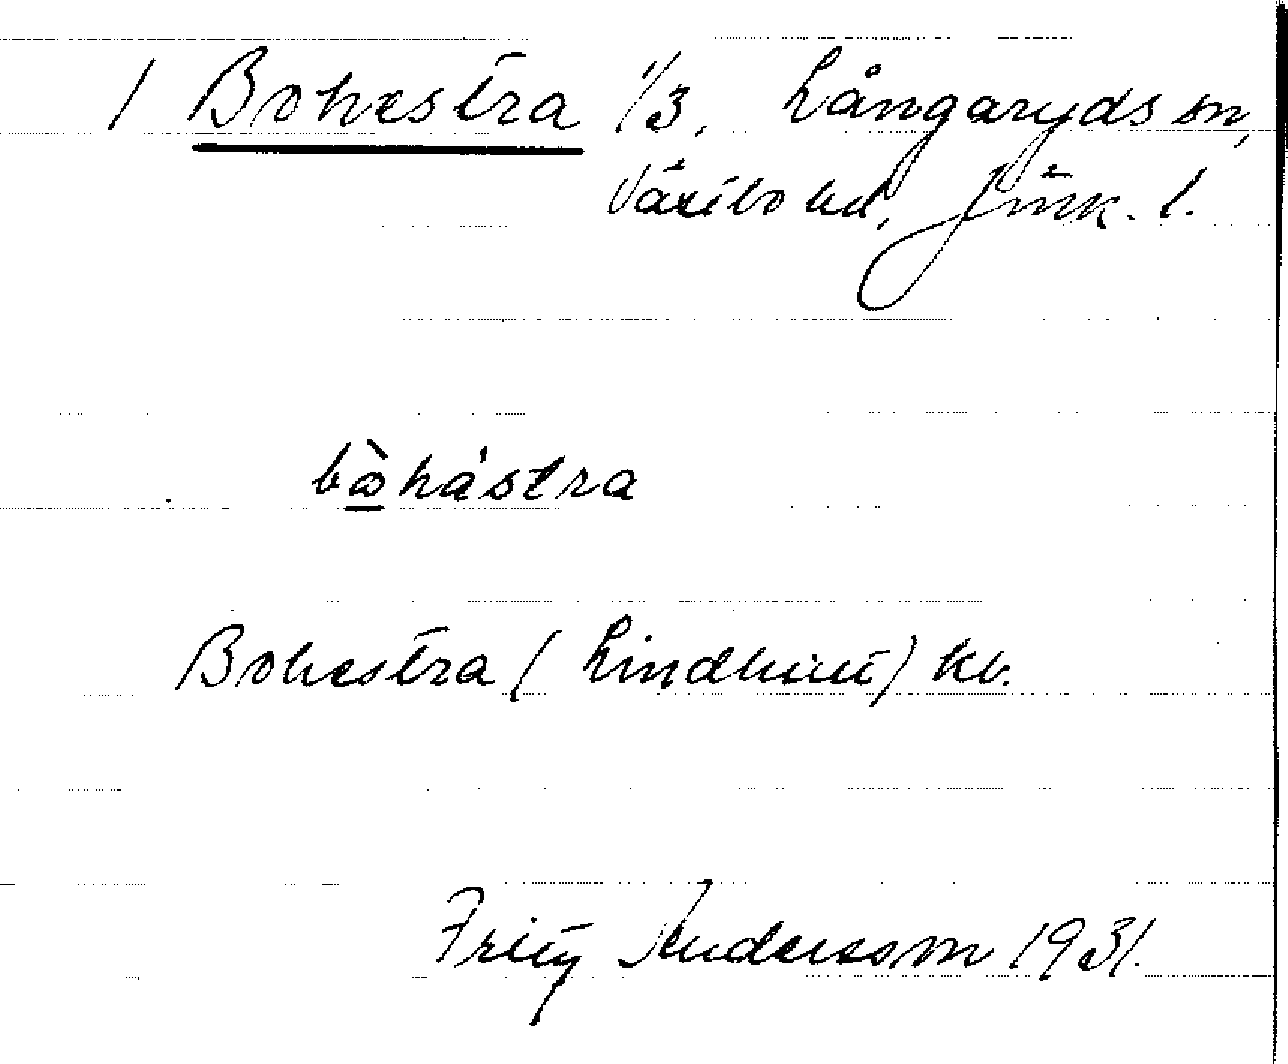 1 Bohestra 1/3, Långaryds sn,
Västbo hd, Jönk. l.
bὼhástra
Bohestra (Lindhult) kb.
Fritz Andersson 1931.